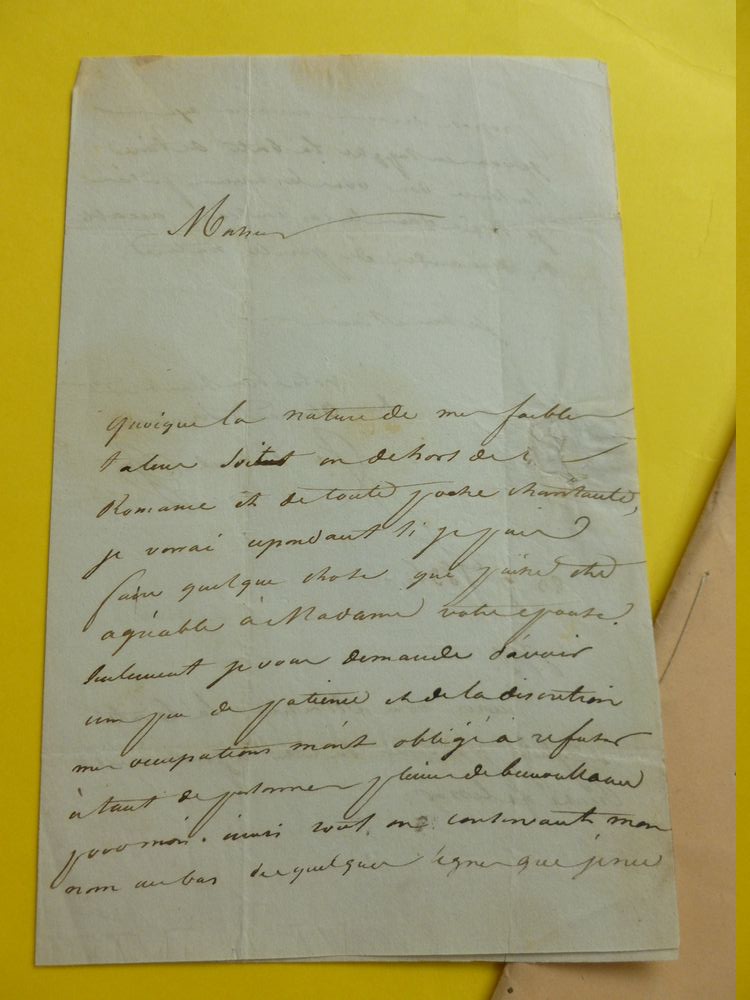 Monsieur
quoique la nature de mes faibles
talens soit en dehors de
Romance et de toute poesie chantante,
je verrai cependant si je puis
faire quelque chose qui puisse etre
agréable à Madame votre epouse.
Seulement je vous demande d'avoir
un peu de patience et de la discretion
mes occupations m'ont obligé à refuser
à tant de personnes pleines de bienveillance
pour moi. ainsi tout en contenant mon
nom au bas de quelques lignes que je